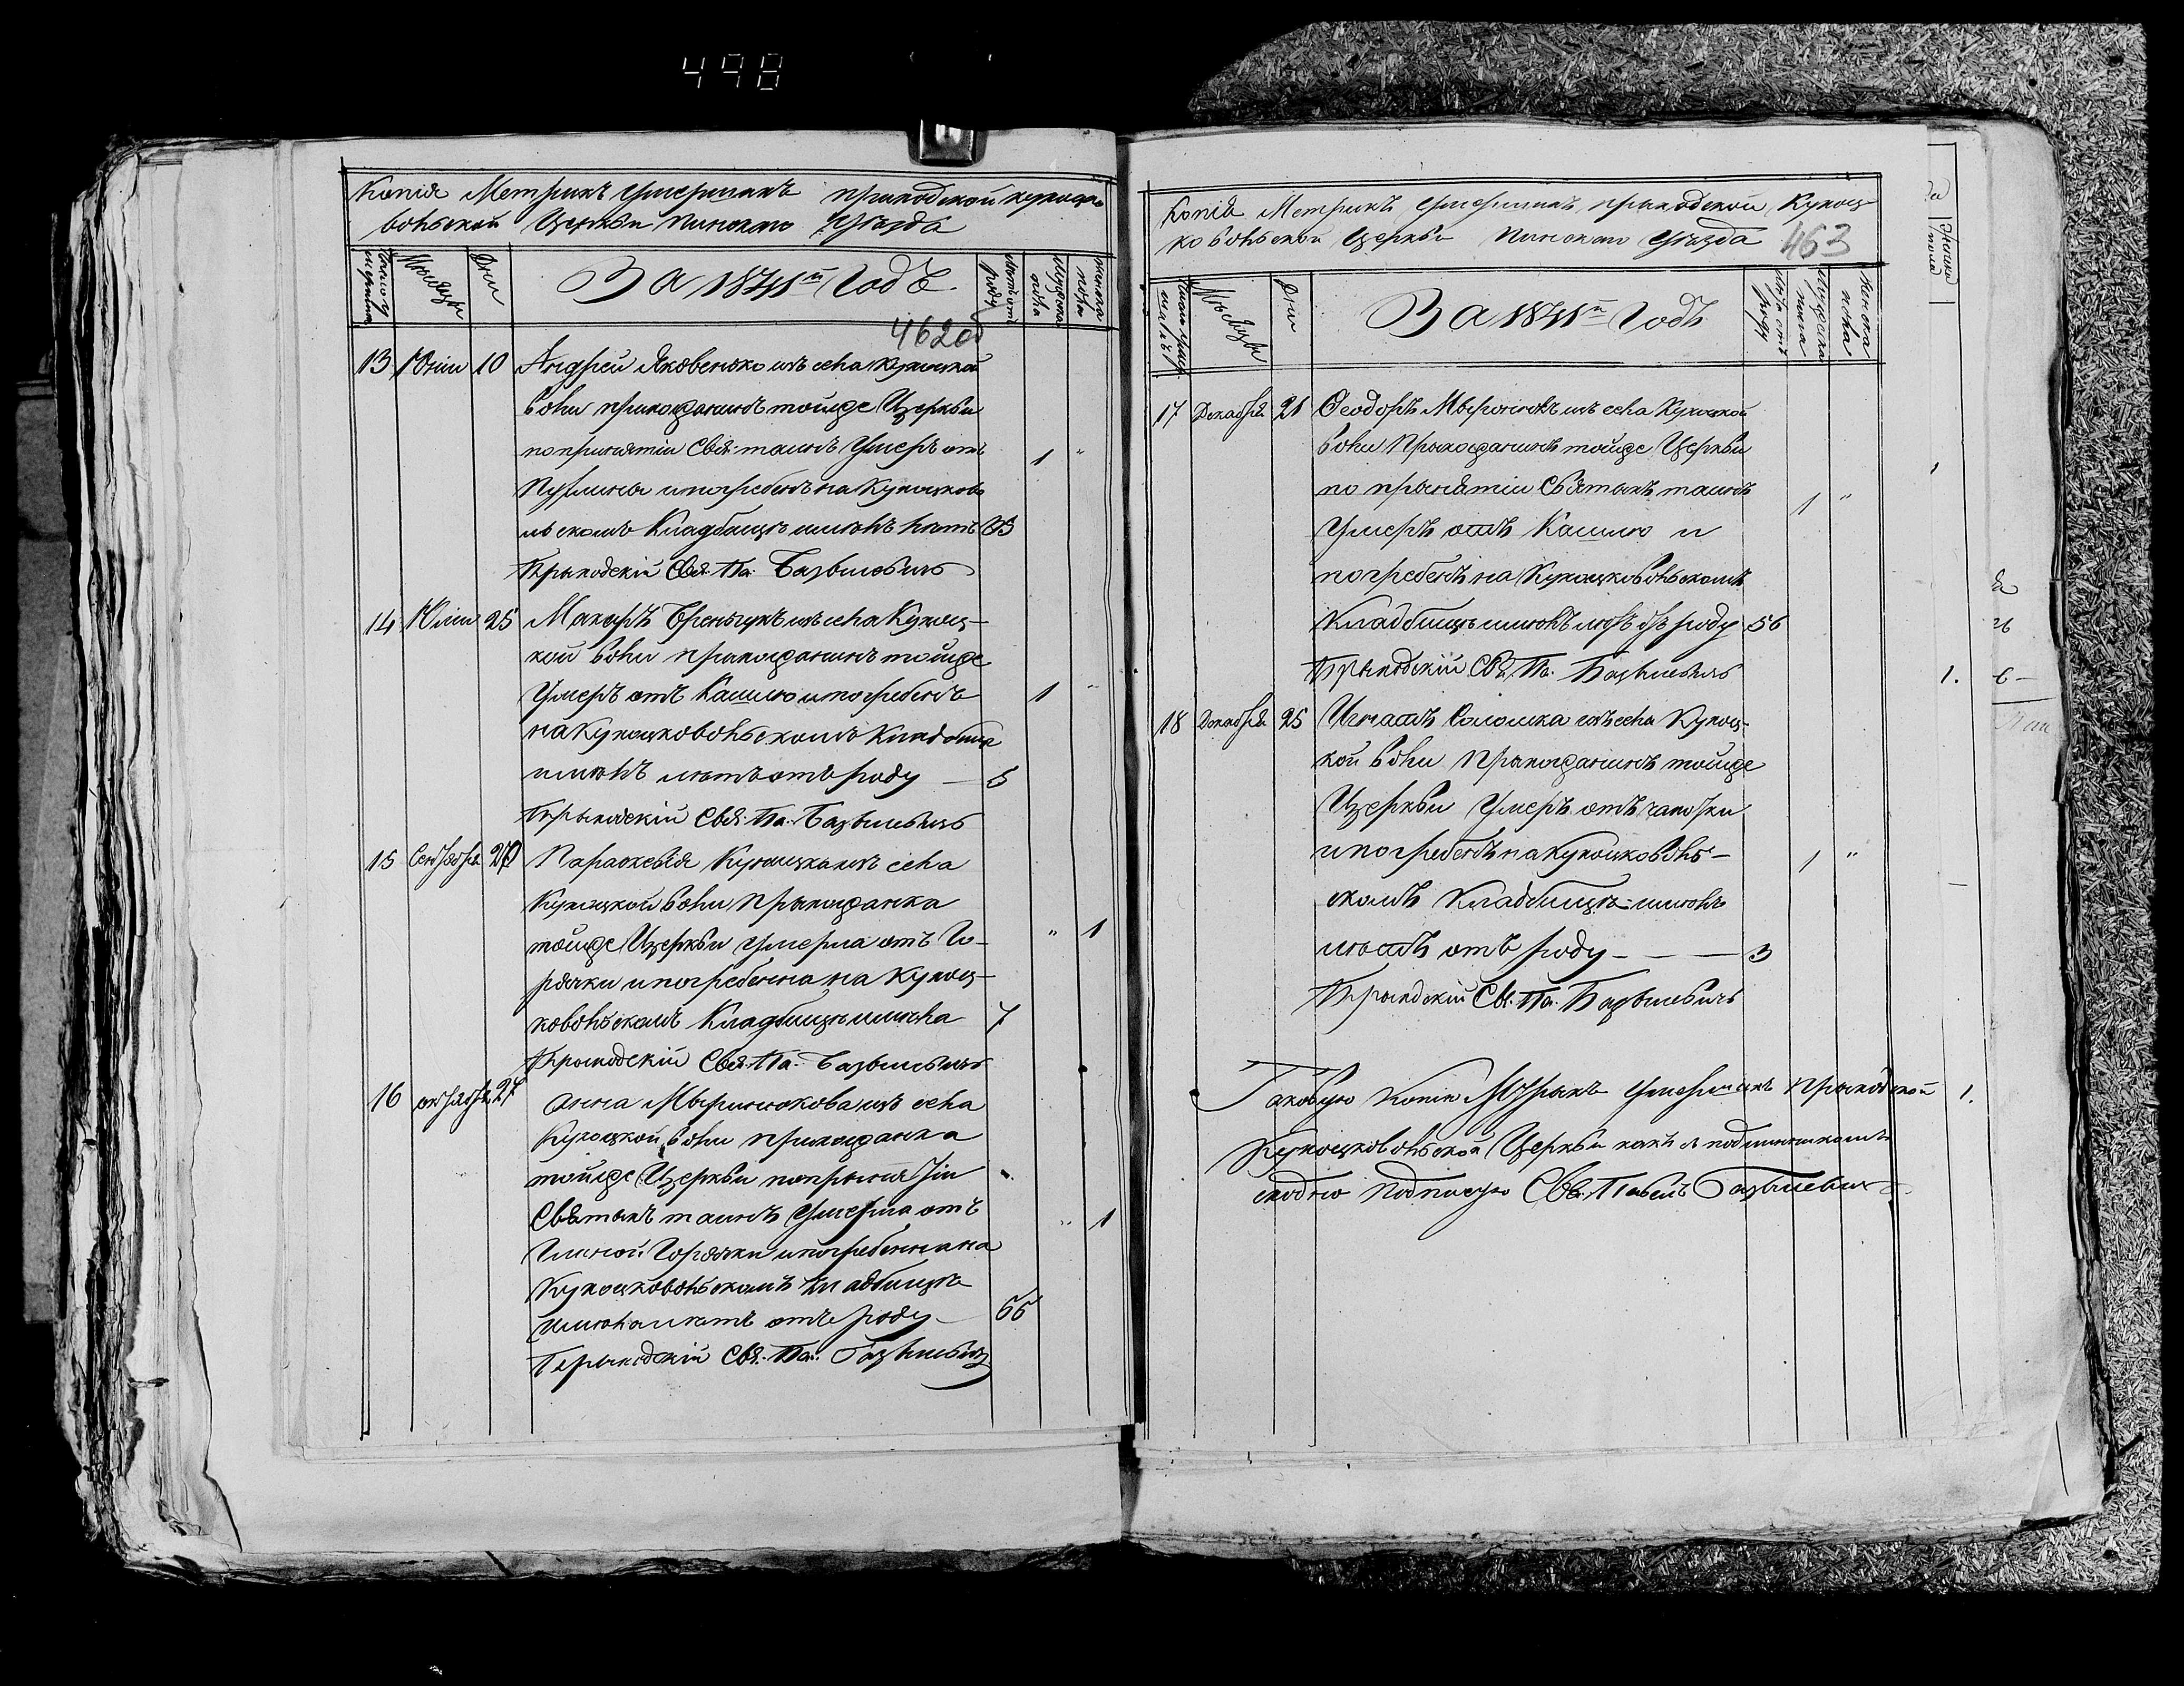 498
Копія Метрикъ Умершихъ приходской Кухоцко
вольской Церкви Пинскаго Уѣзда
Мѣсяцы
Дни
За 1841й Годъ
462об
13 Юни 10 Андрей Яковенко изъ села Кухоцкой
воли прихожанинъ тойже Церкви
по принятіи Свя: таинъ Умеръ отъ
и погребенъ на Кухоцково
льскомъ Кладбищѣ имѣлъ лѣтъ
1 "
Приходскій Свя. Па. Базылевичъ
14 Юлии 25 Макаръ изъ села Кухоц-
кой воли прихожанинъ тойже
Умеръ отъ Кашлю и погребенъ
1 "
на Кухоцковольскомъ Кладбище
имѣлъ лѣтъ отъ роду — 5
Приходскій Свя. Па. Базылевичъ
15 Сентября Параскевія изъ села
Кухоцкой воли прихожанка
тойже Церкви умерла отъ Го-
" 1
рячки и погребенна на Кухоц-
ковольскомъ Кладбищѣ имѣла 7
Приходскій Свя. Па. Базылевичъ
16 октября 27 Анна Миринюкова изъ села
Кухоцкой воли прихожанка
тойже Церкви по принятіи
Святыхъ таинъ Умерла отъ
" 1
Горячки и погребенна на
Кухоцковольскомъ Кладбищѣ
имѣла лѣтъ отъ роду — 66
Приходскій Свя. Па. Базылевичъ
Копія Метрикъ Умершихъ прыходской Кухоц-
ковольской Церкви Пинскаго Уѣзда 463
Мѣсяцы
Дни
За 1841й Годъ
17 Декабря 21 Феодоръ Миронюкъ изъ села Кухоцкой
воли Прыхожанинъ тойже Церкви
по прынятіи Святыхъ таинъ
1 "
Умеръ отъ Кашлю и
погребенъ на Кухоцковольскомъ
Кладбищѣ имѣлъ лѣтъ отъ роду 56
Прыходскій Свя. Па. Базылевичъ
18 Декабря 25 Игнатъ Соломка изъ села Кухоц-
кой воли Прыхожанинъ тойже
Церкви Умеръ отъ чахотки
и погребенъ на Кухоцковоль-
1 "
скомъ Кладбищѣ имѣлъ
лѣтъ отъ роду — — — 3
Прыходскій Св. Па. Базылевичъ
Таковую Копію Метрыкъ Умершихъ Прыходской
Кухоцковольской Церкви какъ съ подлинникомъ
сходно Подписую Свя. Павелъ Базылевичъ